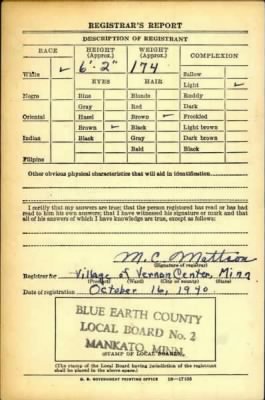 REGISTRAR'S REPORT
DESCRIPTION OF REGISTRANT
RACE HEIGHT (Approx.) WEIGHT (Approx.) COMPLEXION
White ✓ 6'-2" 174 Sallow
EYES HAIR Light ✓
Negro Blue Blonde Ruddy
Gray Red Dark
Oriental Hazel Brown ✓ Freckled
Brown ✓ Black Light brown
Indian Black Gray Dark brown
Bald Black
Filipino
Other obvious physical characteristics that will aid in identification
I certify that my answers are true; that the person registered has read or has had
read to him his own answers; that I have witnessed his signature or mark and that
all of his answers of which I have knowledge are true, except as follows:
M. C. Mattson
(Signature of registrar)
Registrar for Village of Vernon Center, Minn
(Precinct) (Ward) (City or county) (State)
Date of registration October 16, 1940.
BLUE EARTH COUNTY
LOCAL BOARD No. 2
MANKATO, MINN.
(STAMP OF LOCAL BOARD)
(The stamp of the Local Board having jurisdiction of the registrant
shall be placed in the above space.)
U. S. GOVERNMENT PRINTING OFFICE 16—17105